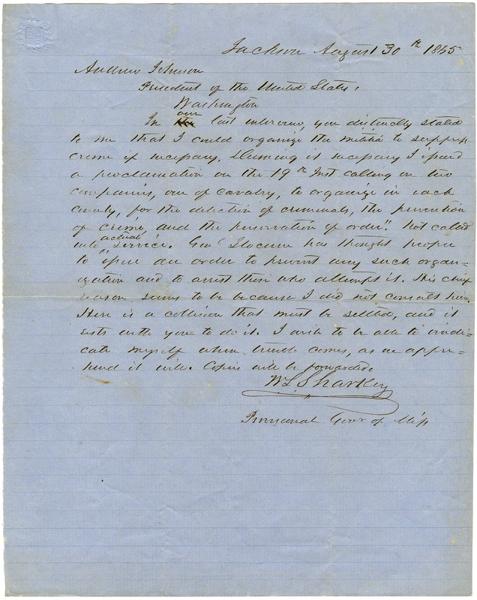 Jackson August 30th 1865
Andrew Johnson
President of the United States,
Washington
In our last interview, you distinctly stated
to me that I could organize the militia to suppress
crime if necessary. Deeming it necessary I issued
a proclamation on the 19th Inst calling on two
companies, one of cavalry, to organize in each
county, for the detection of criminals, the prevention
of crime, and the preservation of order. Not called
into actual service. Genl Slocum has thought proper
to issue an order to prevent any such organ-
ization and to arrest those who attempt it. His chief
reason seems to be because I did not consult him.
Here is a collision that must be settled, and it
rests with you to do it. I wish to be able to vindi-
cate myself when trouble comes, as we appre-
hend it will. Copies will be forwarded.
W L Sharkey
Provisional Govr of Miss